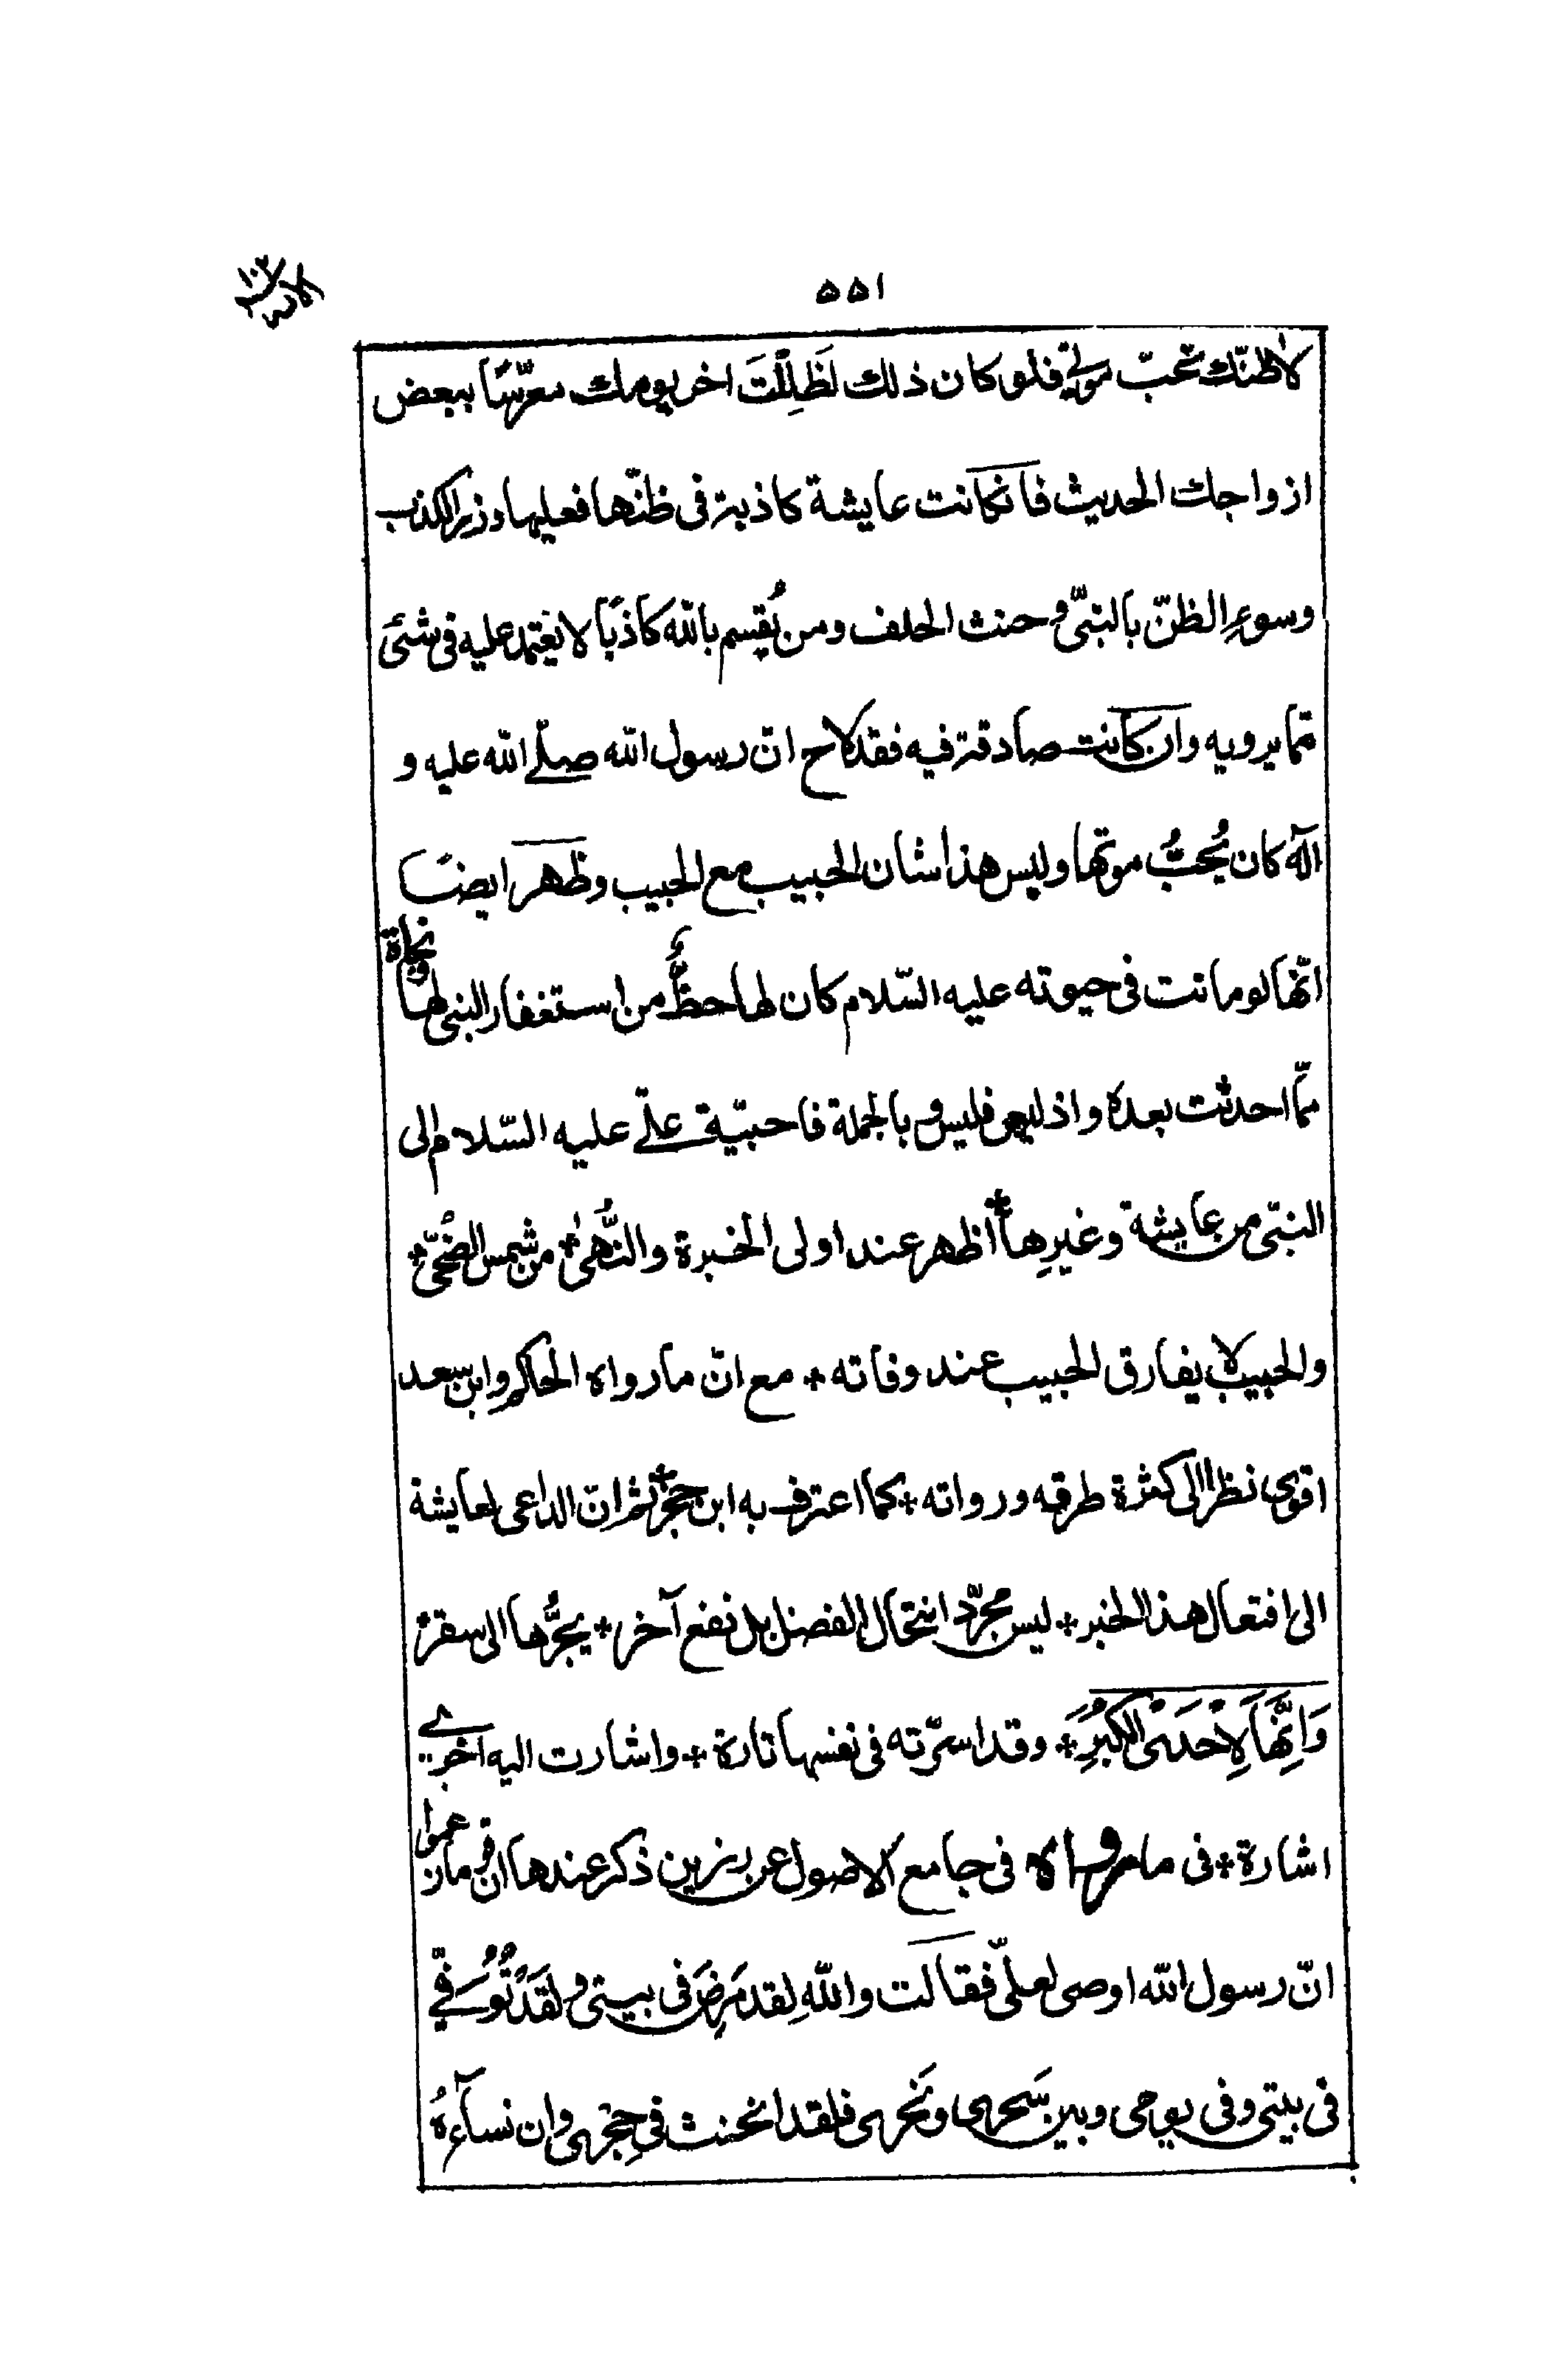 ۵۵۱
لاظنّك تحبّ موتى فلو كان ذلك لَظَلِلْتَ اخر يومك معرّسًا ببعض
ازواجك الحديث فانكانت عايشة كاذبة فى ظنّها فعليها وزر الكذب
وسوءِ الظنّ بالنبىّ و حنث الحلف ومن يُقسِم باللّٰه كاذبًا لا يعتمد عليه فى شئ
ممّا يرويه وان كانت صادقة فيه فقد لاح انّ رسول اللّٰه صلّے اللّٰه عليه و
آله كان يُحبُّ موتها وليس هذا شان الحبيب مع الحبيب وظهر ايضًا
انّها لو ماتت فى حيوته عليه السّلام كان لها حظٌّ من استغفار النبى لها ونجاة
ممّا احدثت بعده واذ ليس فليس و بالجملة فاحبيّة علّے عليه السّلام الى
النبىّ من عايشة وغيرِها * اظهر عند اولى الخبرة والنُّهىٰ * من شمس الضُّحىٰ *
والحبيب لا يفارق الحبيب عند وفاته * مع انّ ما رواه الحاكم وابن سعد
اقوى نظرا الى كثرة طرقه ورواته * كما اعترف به ابن حجر * ثم انّ الداعى لعايشة
الى افتعال هذا الخبر * ليس مجرّد انتحال الفضل بل نفع آخر * يجرُّها الى سقر *
وَاِنَّهَا لَاِحْدَى الكُبَرِ * وقد اسرّته فى نفسها تارة * واشارت اليه اخرے
اشارة * فى ما رواه فى جامع الاصول عن رزين ذكر عندها ان قوما زعموا
انّ رسول اللّٰه اوصى لعلىّ فقالت واللّٰهِ لقد مَرِضَ فى بيتى و لَقَدْ تُوُفِّىَ
فى بيتى وفى يومى وبين سَحرى ونَحرى فلقد انخنث فى حِجْرى وان نسآءهُ